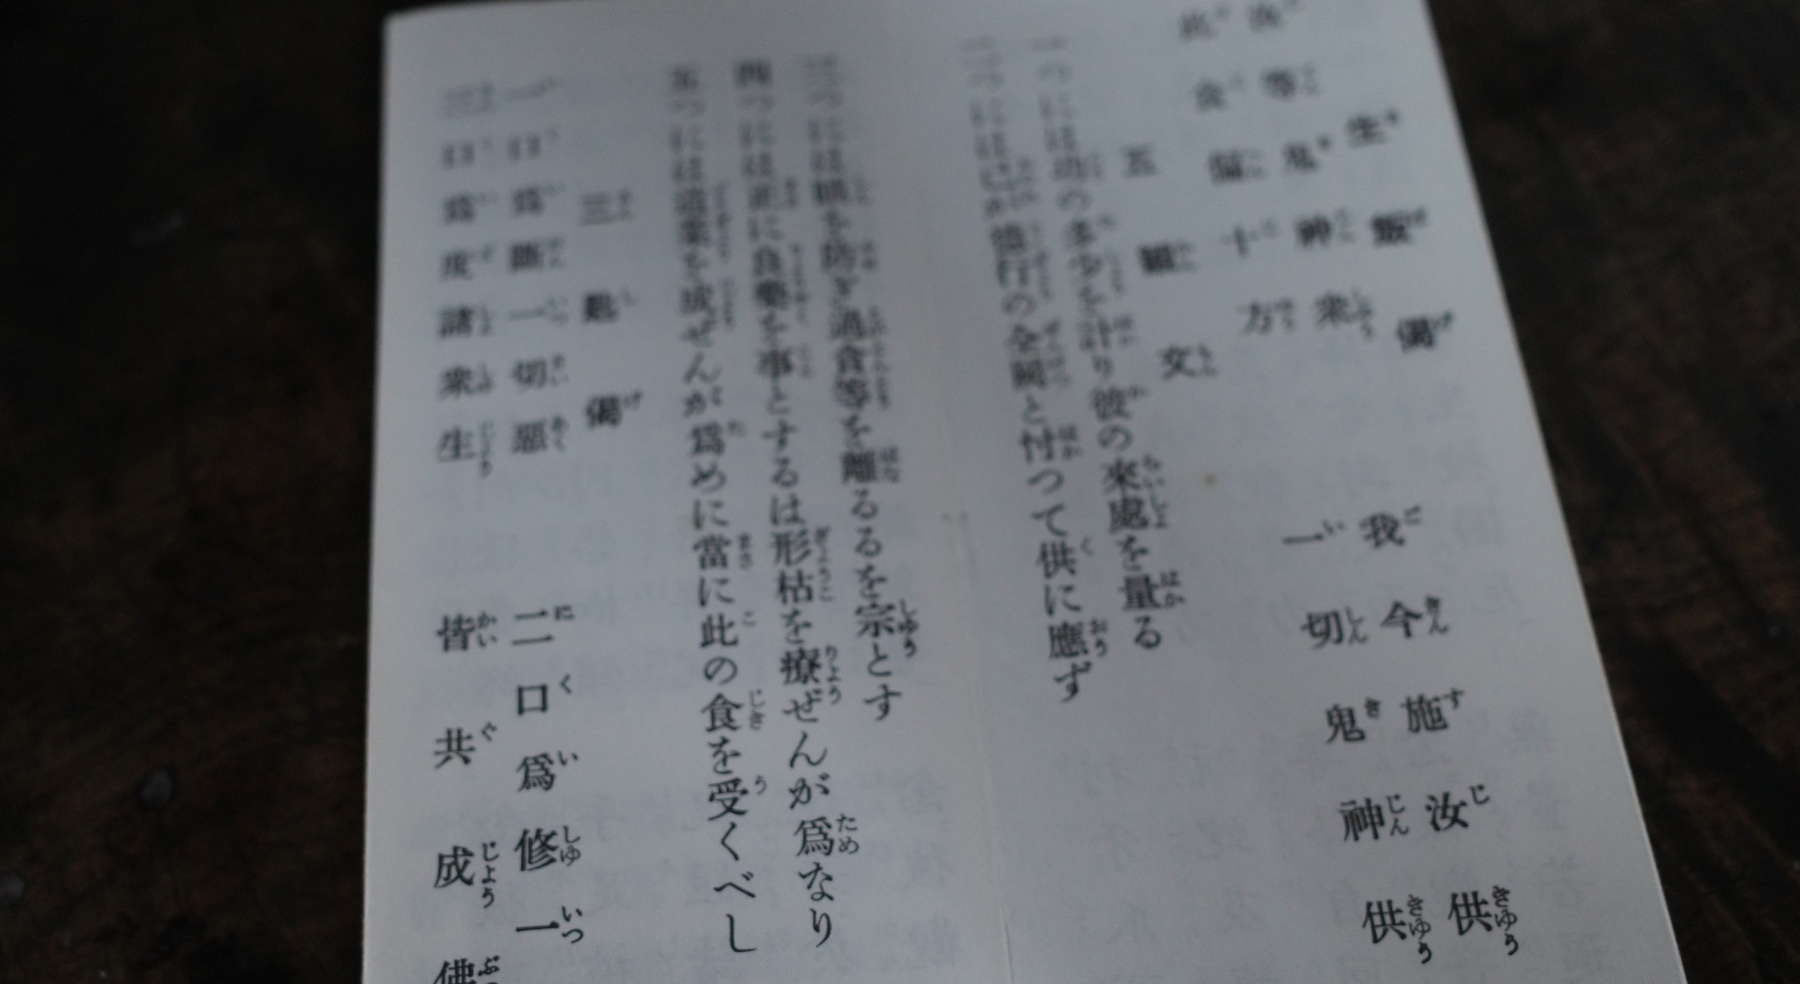 生飯偈
汝等鬼神衆 我今施汝供
此食徧十方 一切鬼神供
五觀文
一つには功の多少を計り彼の來處を量る
二つには己が德行の全闕と忖つて供に應ず
三つには心を防ぎ過貪等を離るるを宗とす
四つには正に良藥を事とするは形枯を療ぜんが爲なり
五つには道業を成ぜんが爲めに當に此の食を受くべし
三匙偈
一口爲斷一切惡 二口爲修一
三口爲度諸衆生 皆共成佛